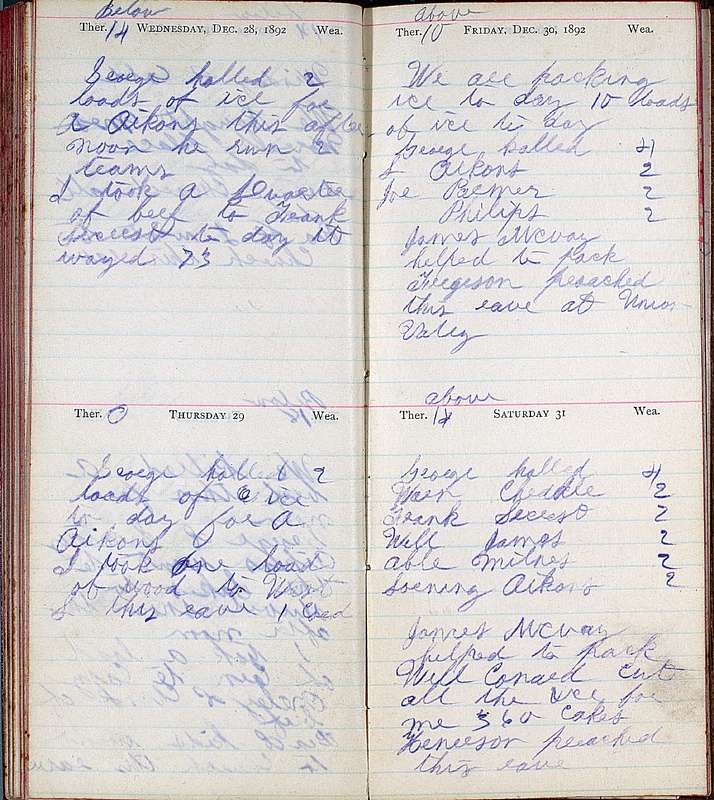 Below
Ther. 14 WEDNESDAY, DEC. 28, 1892 Wea.
George halled 2
loads of ice for
A Aikons this after
noon he run 2
teams
I took a Quarter
of beef to Frank
Secrest to day it
wayed 73
Ther. 0 THURSDAY 29 Wea.
George halled 2
loads of ice
to day for A
Aikons
I took one load
of wood to West
this eave 1 Cord
above
Ther. 10 FRIDAY, DEC. 30, 1892 Wea.
We are packing
ice to day 10 loads
of ice to day
George halled 4
S Aikons 2
Joe Parmer 2
Philips 2
James Mcvay
helped to pack
Firgeson preached
this eave at Union
Valey
above
Ther. SATURDAY 31 Wea.
George halled 4
Cheddle 2
Frank Secrest 2
Will James 2
able Milnes 2
Soening Aikons 2
James Mcvay
helped to pack
Will Conard cut
all the ice for
me 360 cakes
Henerson preached
this eave